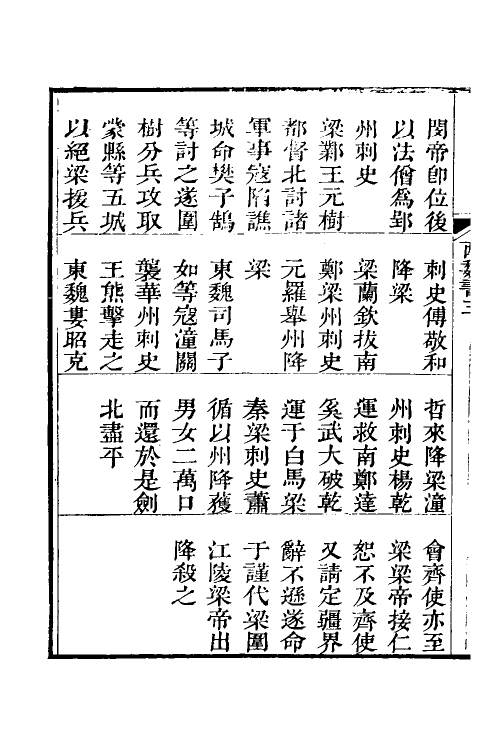 閔帝卽位後
以法僧爲郢
州刺史
梁鄴王元樹
都督北討諸
軍事寇陷譙
城命樊子鵠
等討之遂圍
樹分兵攻取
蒙縣等五城
以絕梁援兵
刺史傅敬和
降梁
梁蘭欽拔南
鄭梁州刺史
元羅舉州降
梁
東魏司馬子
如等寇潼關
襲華州刺史
王熊擊走之
東魏婁昭克
哲來降梁潼
州刺史楊乾
運救南鄭達
奚武大破乾
運于白馬梁
秦梁刺史蕭
循以州降獲
男女二萬口
而還於是劍
北盡平
會齊使亦至
梁梁帝接仁
恕不及齊使
又請定疆界
辭不遜遂命
于謹代梁圍
江陵梁帝出
降殺之